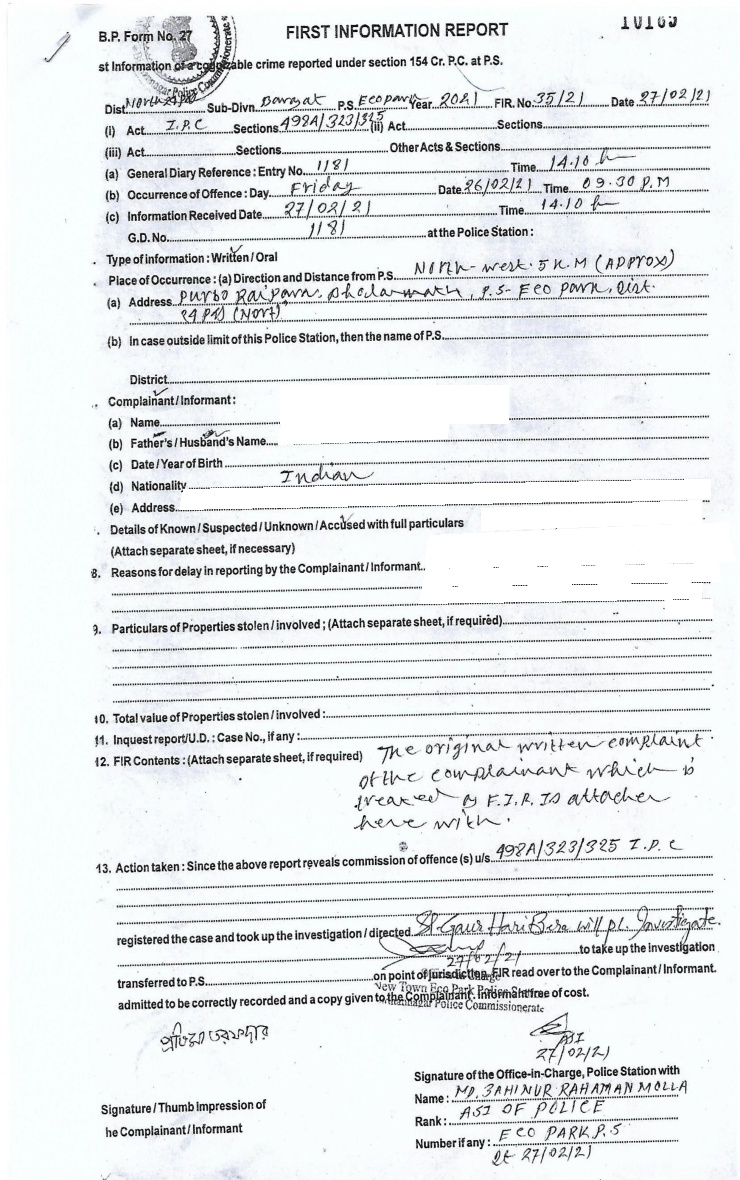 10165
B.P. Form No. 27
FIRST INFORMATION REPORT
st Information of a cognizable crime reported under section 154 Cr. P.C. at P.S.
Dist. North 24 PGS Sub-Divn. Barasat P.S. Ecopark Year 2021 FIR. No. 35/21 Date 27/02/21
(i) Act I.P.C Sections 498A/323/325 (ii) Act Sections
(iii) Act Sections Other Acts & Sections
(a) General Diary Reference : Entry No. 1181 Time 14.10 h
(b) Occurrence of Offence : Day Friday Date 26/02/21 Time 09.30 P.M
(c) Information Received Date 27/02/21 Time 14.10 h
G.D. No. 1181 at the Police Station :
Type of information : Written / Oral
Place of Occurrence : (a) Direction and Distance from P.S. North-west. 5 K.M (Approx)
(a) Address Purbo Raipara, P.S- Eco Park, Dist.
24 PGS (Nort)
(b) In case outside limit of this Police Station, then the name of P.S.
District
Complainant / Informant :
(a) Name
(b) Father's / Husband's Name
(c) Date / Year of Birth
(d) Nationality Indian
(e) Address
Details of Known / Suspected / Unknown / Accused with full particulars
(Attach separate sheet, if necessary)
8. Reasons for delay in reporting by the Complainant / Informant..
9. Particulars of Properties stolen / involved ; (Attach separate sheet, if required)
10. Total value of Properties stolen / involved :
11. Inquest report/U.D. : Case No., if any :
12. FIR Contents : (Attach separate sheet, if required) The original written complaint
of the complainant which is
treated as F.I.R. is attached
here with.
13. Action taken : Since the above report reveals commission of offence (s) u/s 498A/323/325 I.P.C
registered the case and took up the investigation / directed SI Gour Hari Bera will pl. Investigate.
27/02/21 to take up the investigation
transferred to P.S. on point of jurisdiction. FIR read over to the Complainant / Informant.
New Town Eco Park Police Station
admitted to be correctly recorded and a copy given to the Complainant. Informant free of cost.
Bidhannagar Police Commissionerate
প্রতিমা তরফদার
ASI
27/02/21
Signature of the Office-in-Charge, Police Station with
Name : MD. JAHINUR RAHAMAN MOLLA
Signature / Thumb impression of
Rank : ASI OF POLICE
he Complainant / Informant
Number if any : ECO PARK P.S
27/02/21